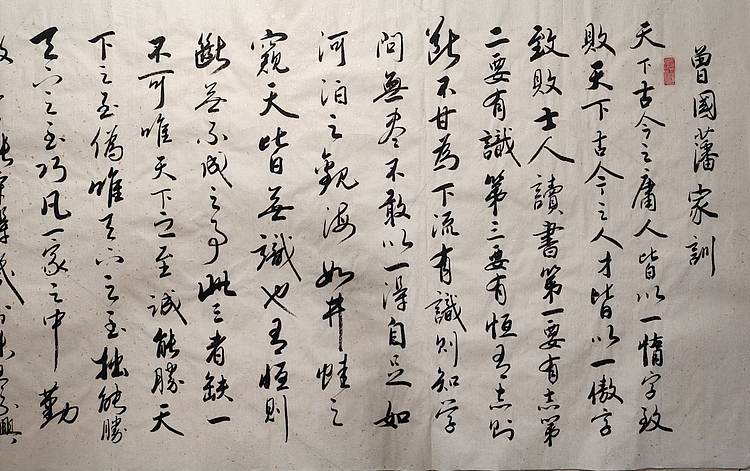 曾國藩家訓
天下古今之庸人皆以一惰字致
敗天下古今之人才皆以一傲字
致敗士人讀書第一要有志第
二要有識第三要有恒有志則
斷不甘為下流有識則知学
問無盡不敢以一得自足如
河泊之觀海如井蛙之
窺天皆無識也有恒則
斷無不成之事此三者缺一
不可唯天下之至誠能勝天
下之至偽唯天下之至拙能勝
天下之至巧凡一家之中勤